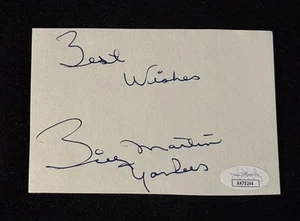 Best
Wishes
Billy Martin
Yankees
AK70244